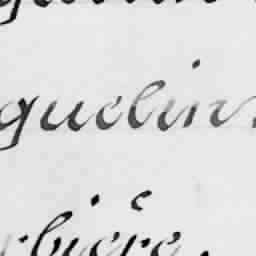 quelin
rbière.